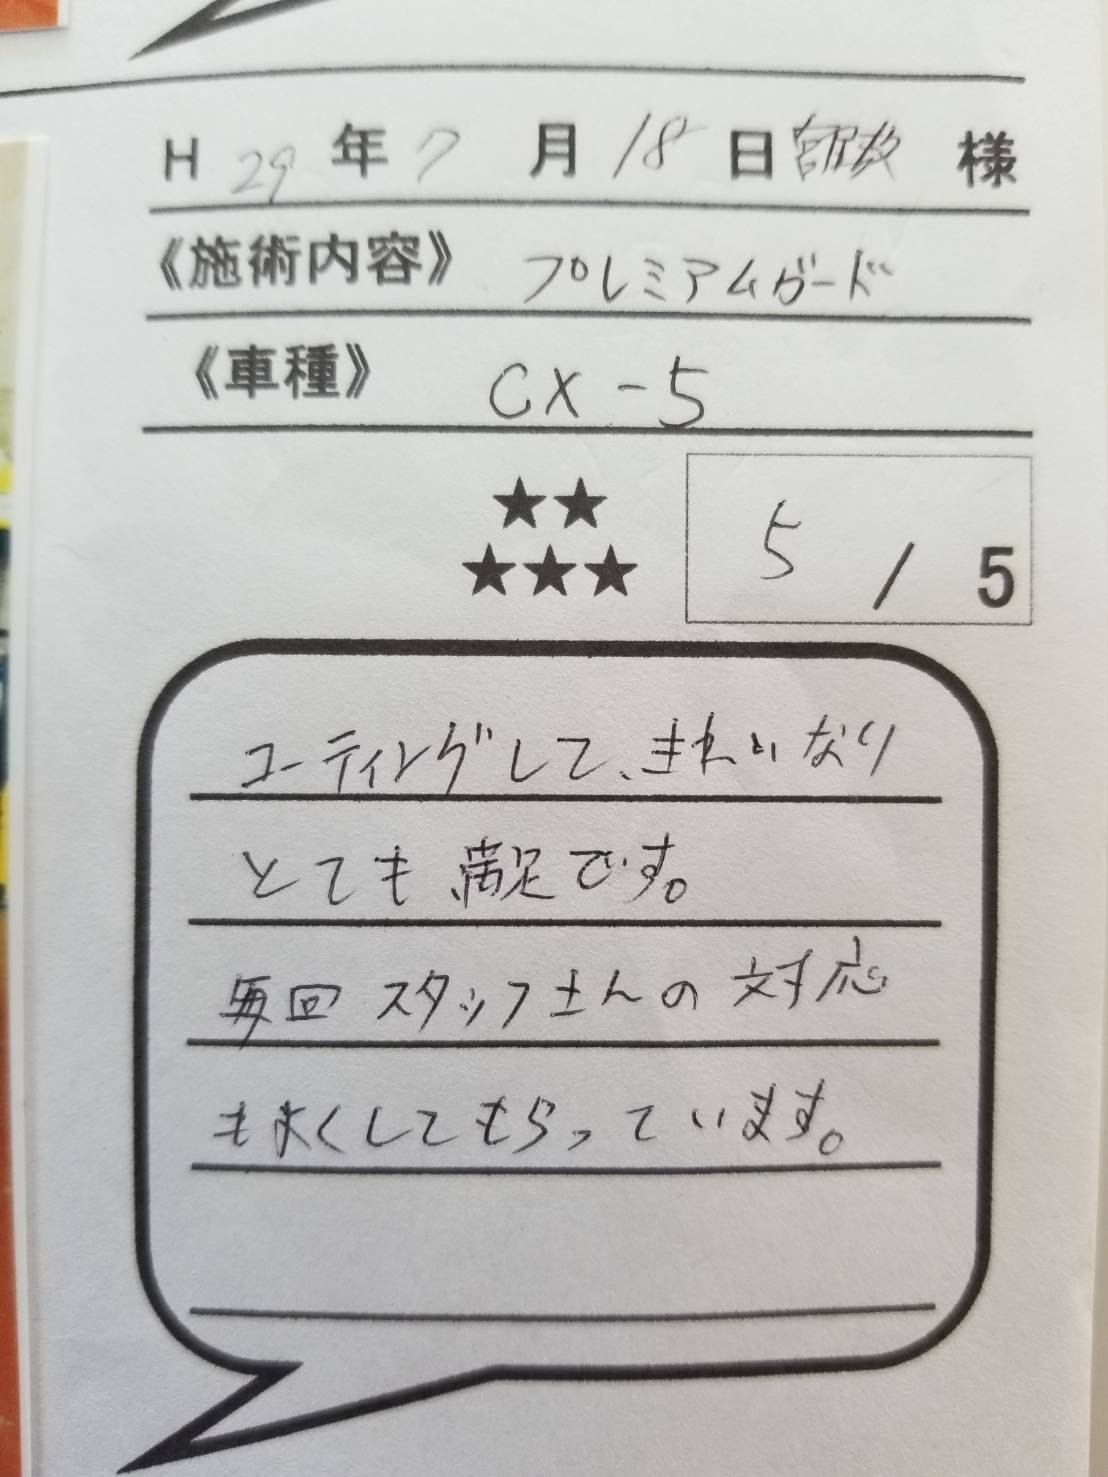 H 29 年 7 月 18 日 様
《施術内容》 プレミアムガード
《車種》 CX-5
★★
★★★
5 / 5
コーティングして、きれいなり
とても満足です。
毎回スタッフさんの対応
もよくしてもらっています。